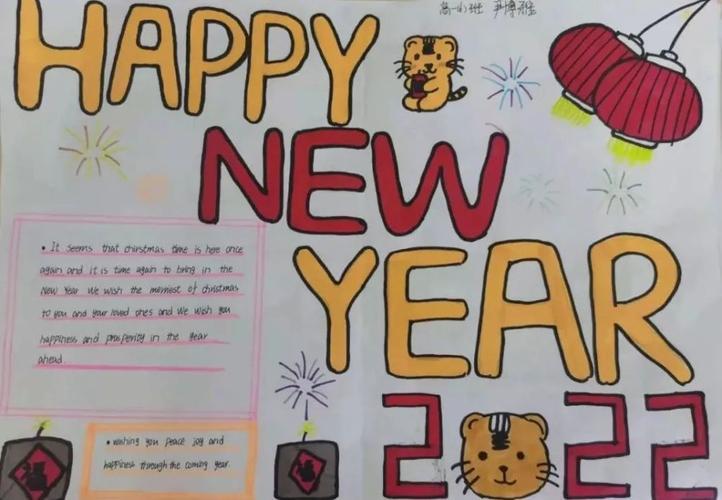 HAPPY
高一小班
NEW
YEAR
• It seems that chirstmas time is here once
again and it is time again to bring in the
New Year We wish the merriest of christmas
to you and your loved ones and We wish you
happiness and prosperity in the year
ahead.
• wishing you peace joy and
happiness through the coming year.
福
福
2 22